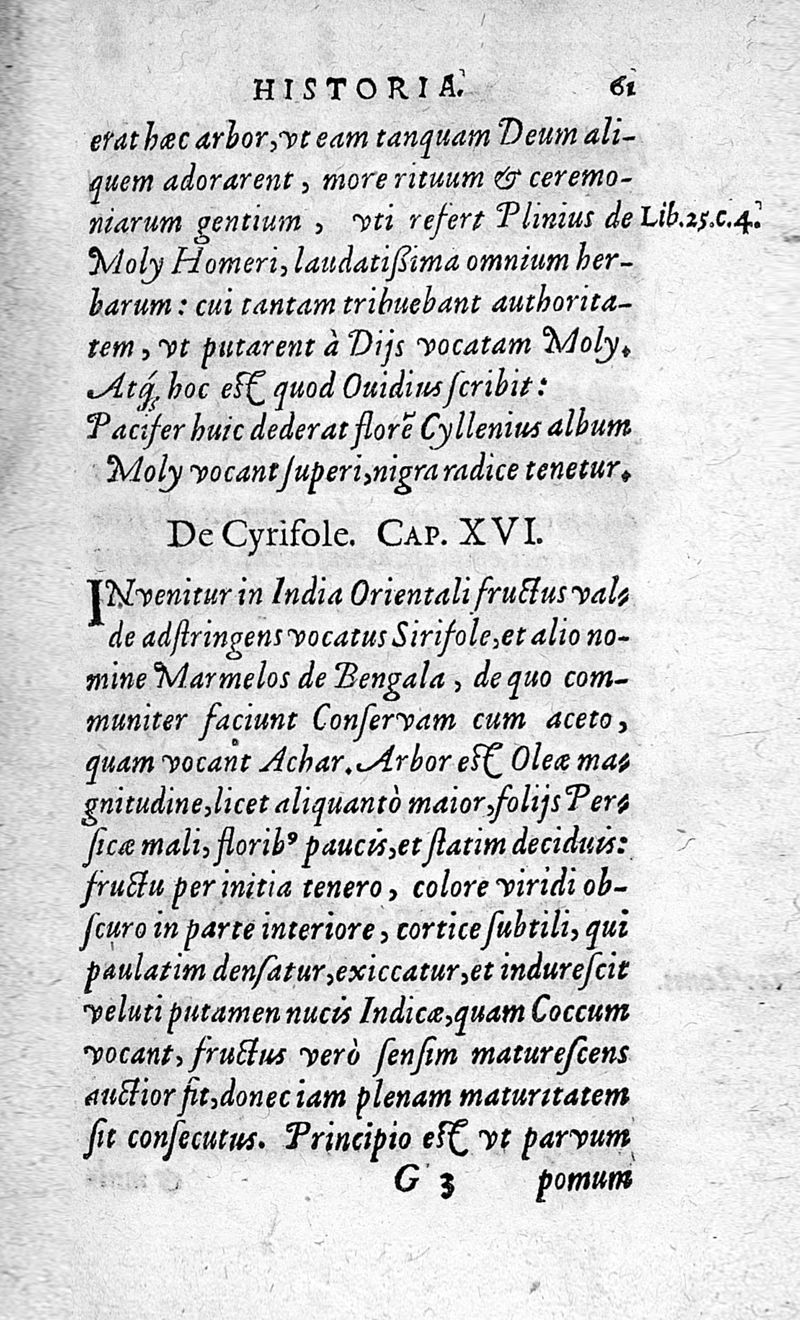 HISTORIA. 61
erat hæc arbor, vt eam tanquam Deum ali-
quem adorarent, more rituum & ceremo-
niarum gentium, vti refert Plinius de Lib.25.c.4.
Moly Homeri, laudatißima omnium her-
barum: cui tantam tribuebant authorita-
tem, vt putarent à Dijs vocatam Moly.
Atq́; hoc est quod Ouidius ſcribit:
Pacifer huic dederat florẽ Cyllenius album
Moly vocant ſuperi, nigra radice tenetur.
De Cyrifole. CAP. XVI.
INvenitur in India Orientali fructus val-
de adſtringens vocatus Sirifole, et alio no-
mine Marmelos de Bengala, de quo com-
muniter faciunt Conſervam cum aceto,
quam vocant Achar. Arbor est Oleæ ma-
gnitudine, licet aliquantò maior, folijs Per-
ſicæ mali, floribꝰ paucis, et ſtatim deciduis:
fructu per initia tenero, colore viridi ob-
ſcuro in parte interiore, cortice ſubtili, qui
paulatim denſatur, exiccatur, et indureſcit
veluti putamen nucis Indicæ, quam Coccum
vocant, fructus verò ſenſim matureſcens
auctior fit, donec iam plenam maturitatem
ſit conſecutus. Principio est vt parvum
G 3 pomum